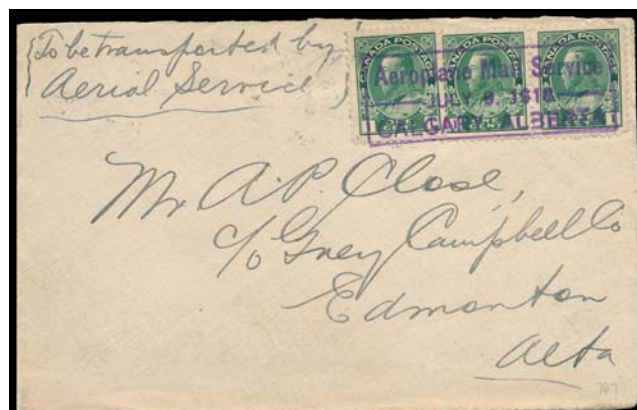 To be transported by
Aerial Service
CANADA POSTAGE CANADA POSTAGE CANADA POSTAGE
Aeroplane Mail Service
JUL 9, 1918
CALGARY ALBERTA
Mr A. P. Close,
c/o Grey Campbell Co
Edmonton
Alta